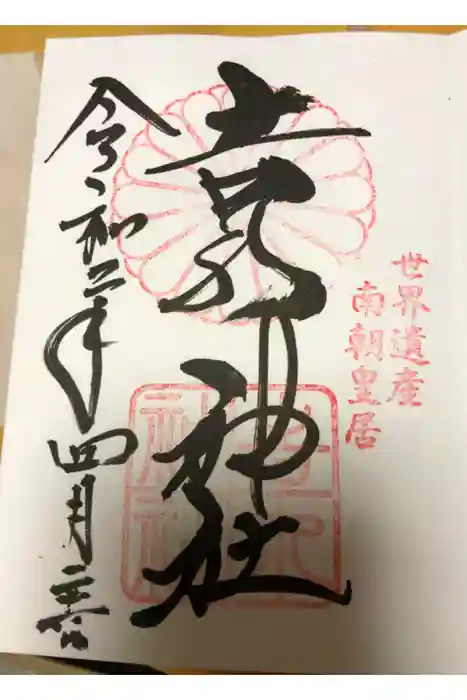 世界遺産
南朝皇居
吉水神社
令和二年四月